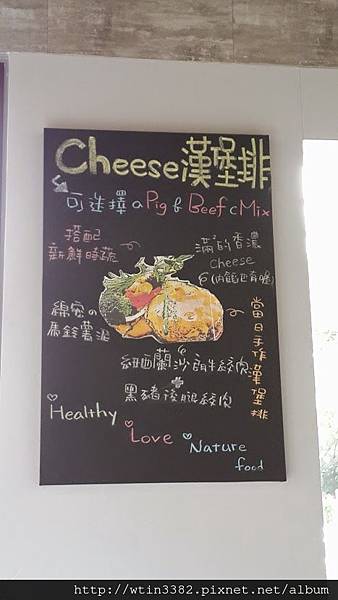 Cheese漢堡排
可選擇 a Pig b Beef c Mix
搭配
新鮮時蔬
滿滿的香濃
cheese
(內餡也有喔)
綿密の
馬鈴薯泥
當日手作漢堡排
紐西蘭沙朗牛絞肉
+
黑豬後腿絞肉
Healthy
Love
Nature
food
http://wtin3382.pixnet.net/album